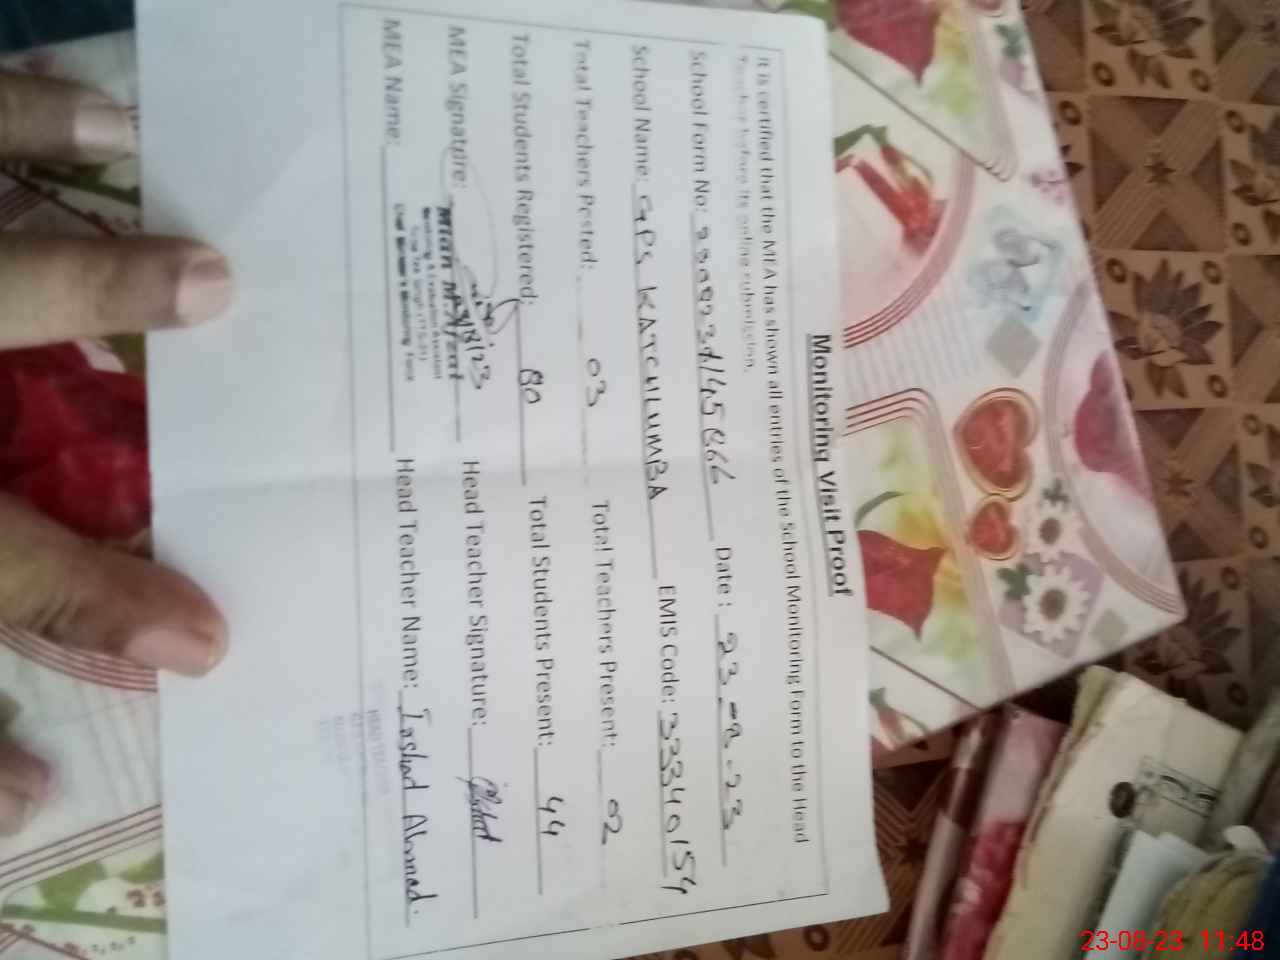 Monitoring Visit Proof
It is certified that the MEA has shown all entries of the School Monitoring Form to the Head
Teacher before its online submission.
School Form No: Date : 23-8-23
School Name: GPS KATCHLUMBA EMIS Code: 33340154
Total Teachers Posted: 03 Total Teachers Present: 02
Total Students Registered: 80 Total Students Present: 44
MEA Signature: Head Teacher Signature:
MEA Name: Head Teacher Name: Ahmad.
23-08-23 11:48